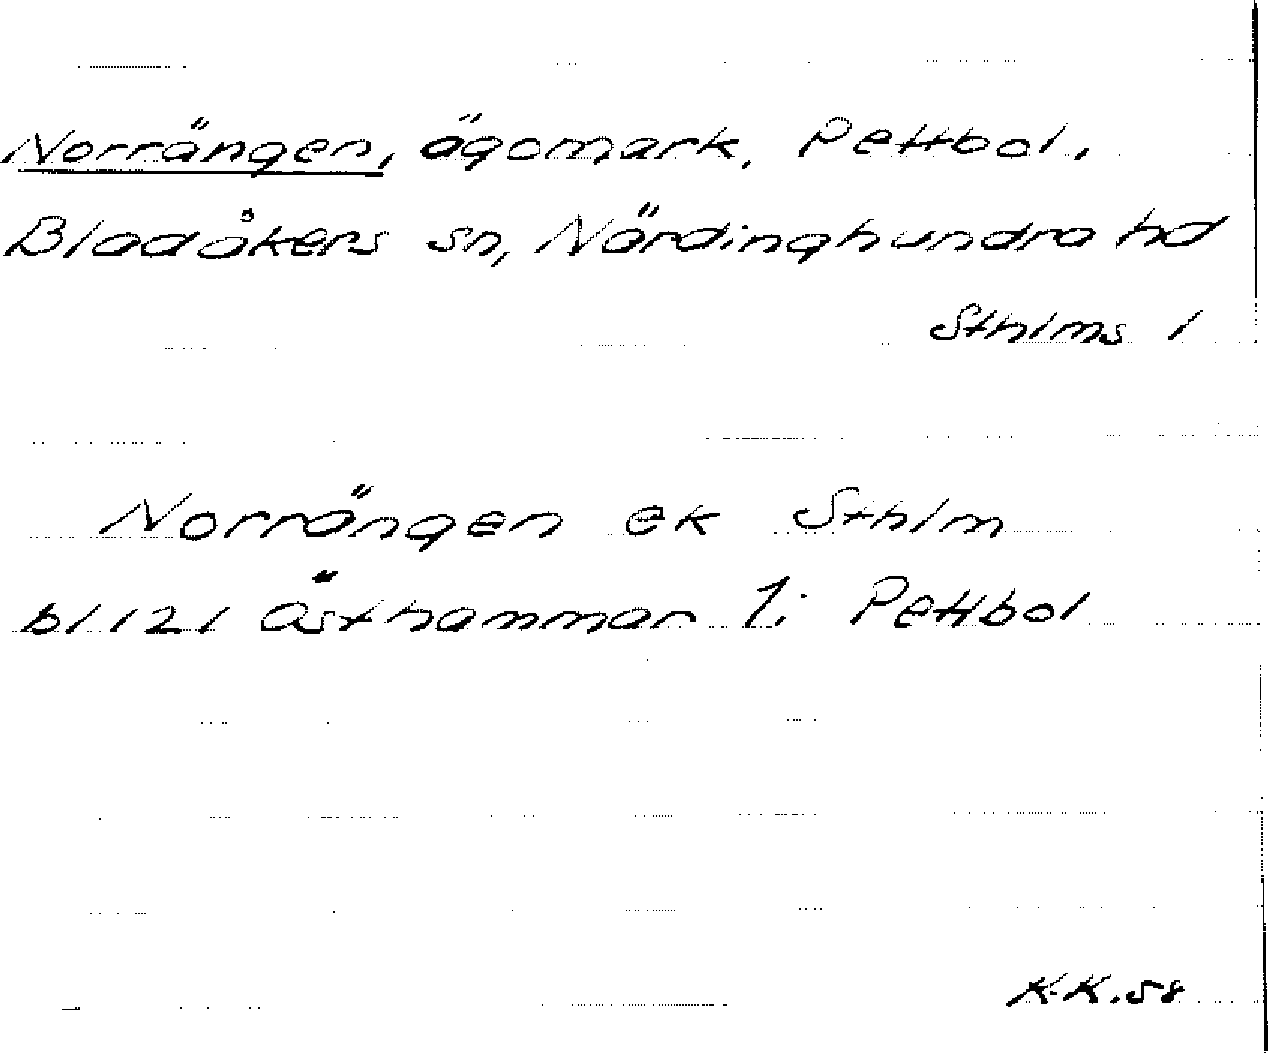 Norrängen, ägomark, Pettbol,
Bladåkers sn, Närdinghundra hd
Sthlms l
Norrängen ek Sthlm
bl 121 Östhammar 1: Pettbol
K-K.58